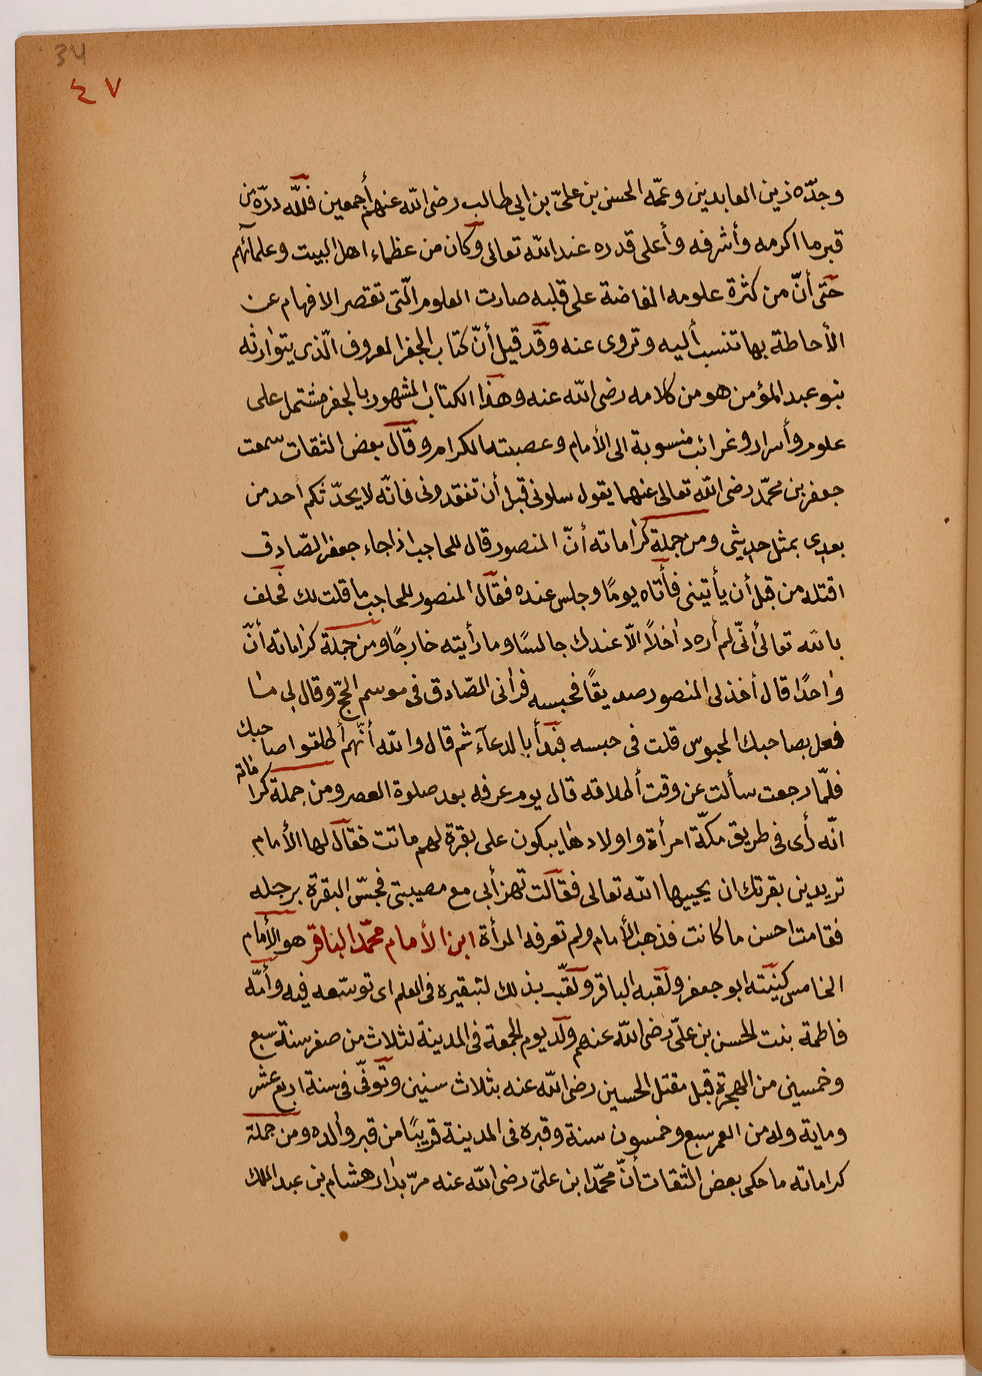 34
٤٧
وجدّه زين العابدين وعمّه الحسن بن علىّ بن ابى طالب رضى الله عنهم أجمعين فللّه درّه من
قبر ما اكرمه وأشرفه وأعلى قدره عند الله تعالى وكان من عظماء اهل البيت وعلمائهم
حتّى أنّ من كثرة علومه المفاضة على قلبه صارت العلوم الّتى تقصر الافهام عن
الأحاطة بها تنسب أليه وتروى عنه وقد قيل أنّ كتاب الجفر المعروف الّذى يتوارثه
بنو عبد المؤمن هو من كلامه رضى الله عنه وهذا الكتاب المشهور بالجفر مشتمل على
علوم وأسرار وغرائب منسوبة الى الأمام وعصبته الكرام وقال بعض الثقات سمعت
جعفر بن محمّد رضى الله تعالى عنهما يقول سلونى قبل أن تفقدونى فانّه لا يحدّثكم احد من
بعدى بمثل حديثى ومن جملة كراماته أنّ المنصور قال للحاجب اذا جاء جعفر الصّادق
اقتله من قبل أن يأتينى فأتاه يومًا وجلس عنده فقال المنصور للحاجب ما قلت لك فحلف
بالله تعالى أنّى لم أره داخلاً الّا عندك جالسًا وما رأيته خارجًا ومن جملة كراماته أنّ
واحدًا قال أخذ لى المنصور صديقًا فحبسه فرانى الصّادق فى موسم الحجّ وقال لى ما
فعل بصاحبك المحبوس قلت فى حبسه فبدأ بالدعآء ثم قال والله أنّهم أطلقوا صاحبك
فلمّا رجعت سألت عن وقت أطلاقه قال يوم عرفه بعد صلوة العصر ومن جملة كراماته
انّه رأى فى طريق مكّة امرأة واولادها يبكون على بقرة لهم ماتت فقال لها الأمام
تريدين بقرتك ان يحييها الله تعالى فقالت تهزأ بى مع مصيبتى فجسّ البقرة برجله
فقامت احسن ما كانت فذهب الأمام ولم تعرفه المرأة ابن الأمام محمّد الباقر هو الأمام
الخامس كنيته ابو جعفر ولقبه الباقر ولقّب بذلك لتبقيره فى العلم اى توسّعه فيه وأمّه
فاطمة بنت الحسن بن علىّ رضى الله عنهم ولد يوم الجمعة فى المدينة لثلاث من صفر سنة سبع
وخمسين من الهجرة قبل مقتل الحسين رضى الله عنه بثلاث سنين وتوفّى فى سنة اربع عشر
وماية وله من العمر سبع وخمسون سنة وقبره فى المدينة قريبًا من قبر والده ومن جملة
كراماته ما حكى بعض الثقات أنّ محمّد ابن علىّ رضى الله عنه مرّ بدار هشام بن عبد الملك